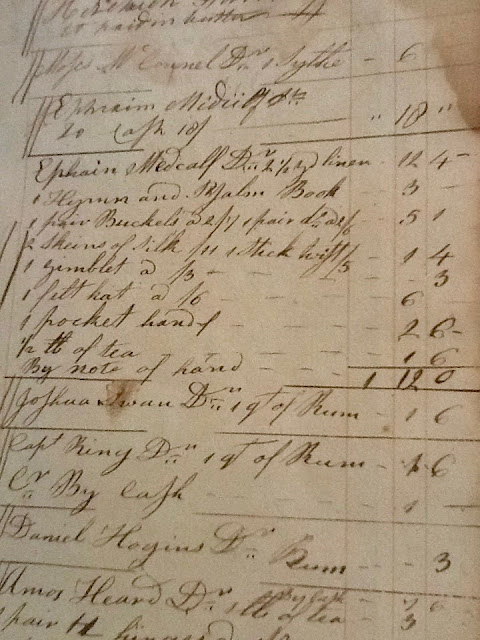 Moses McConnel Dr 1 Sythe - 6
Ephraim
To Cash 18/ " 18 "
Ephraim Medcalf Dr 2 1/2 yd linen - 12 4
1 Hymn and Psalm Book 3 -
1 pair Buckels a 2/7 1 pair do a 2/6 5 1
2 Skeins of Silk /11 1 Stick twist /5 1 4
1 gimblet a /3 - 3
1 felt hat a /6 - 6
1 pocket handf - 2 6
1/2 lb of tea 1 6
By note of hand - 1 12 0
Joshua Swan Dr 1 qt of Rum - 1 6
Capt King Dr 1 qt of Rum - 1 6
Cr By Cash 1 -
Daniel Hogins Dr Rum - 3
Amos Heard Dr 1 lb of tea 3
1 pair H hinges